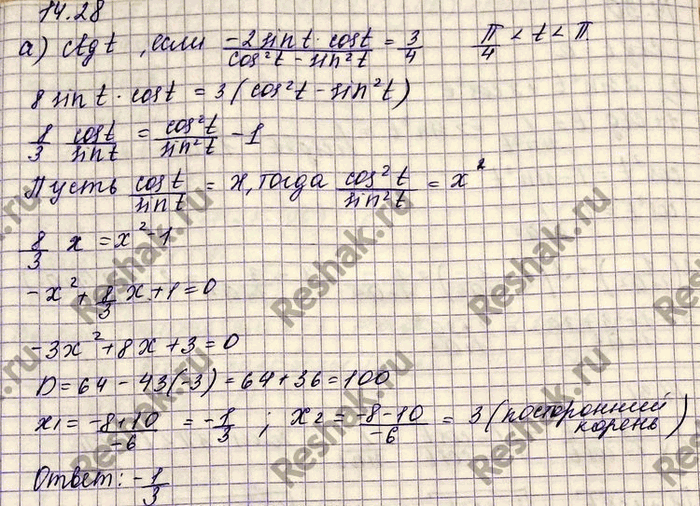 14.28
а) ctg t, если -2 sin t · cos t / cos²t - sin²t = 3/4 π/4 < t < π
8 sin t · cos t = 3(cos²t - sin²t)
8/3 cos t/sin t = cos²t/sin²t - 1
Пусть cos t/sin t = x, тогда cos²t/sin²t = x²
8/3 x = x² - 1
-x² + 8/3 x + 1 = 0
-3x² + 8x + 3 = 0
D = 64 - 43(-3) = 64 + 36 = 100
x₁ = -8+10/-6 = -1/3 ; x₂ = -8-10/-6 = 3 (посторонний корень)
Ответ: -1/3
Reshak.ru
Reshak.ru
Reshak.ru
Reshak.ru